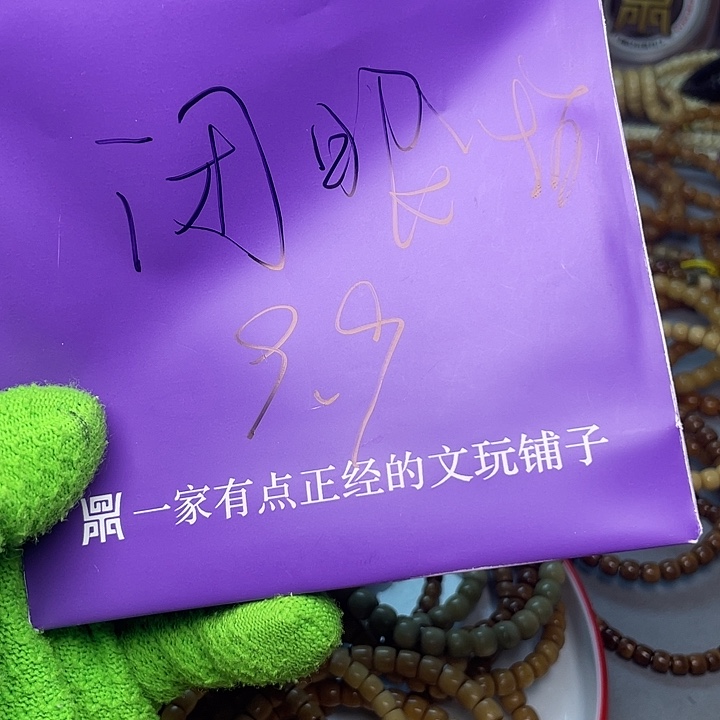 闭眼拍
9.9
一家有点正经的文玩铺子